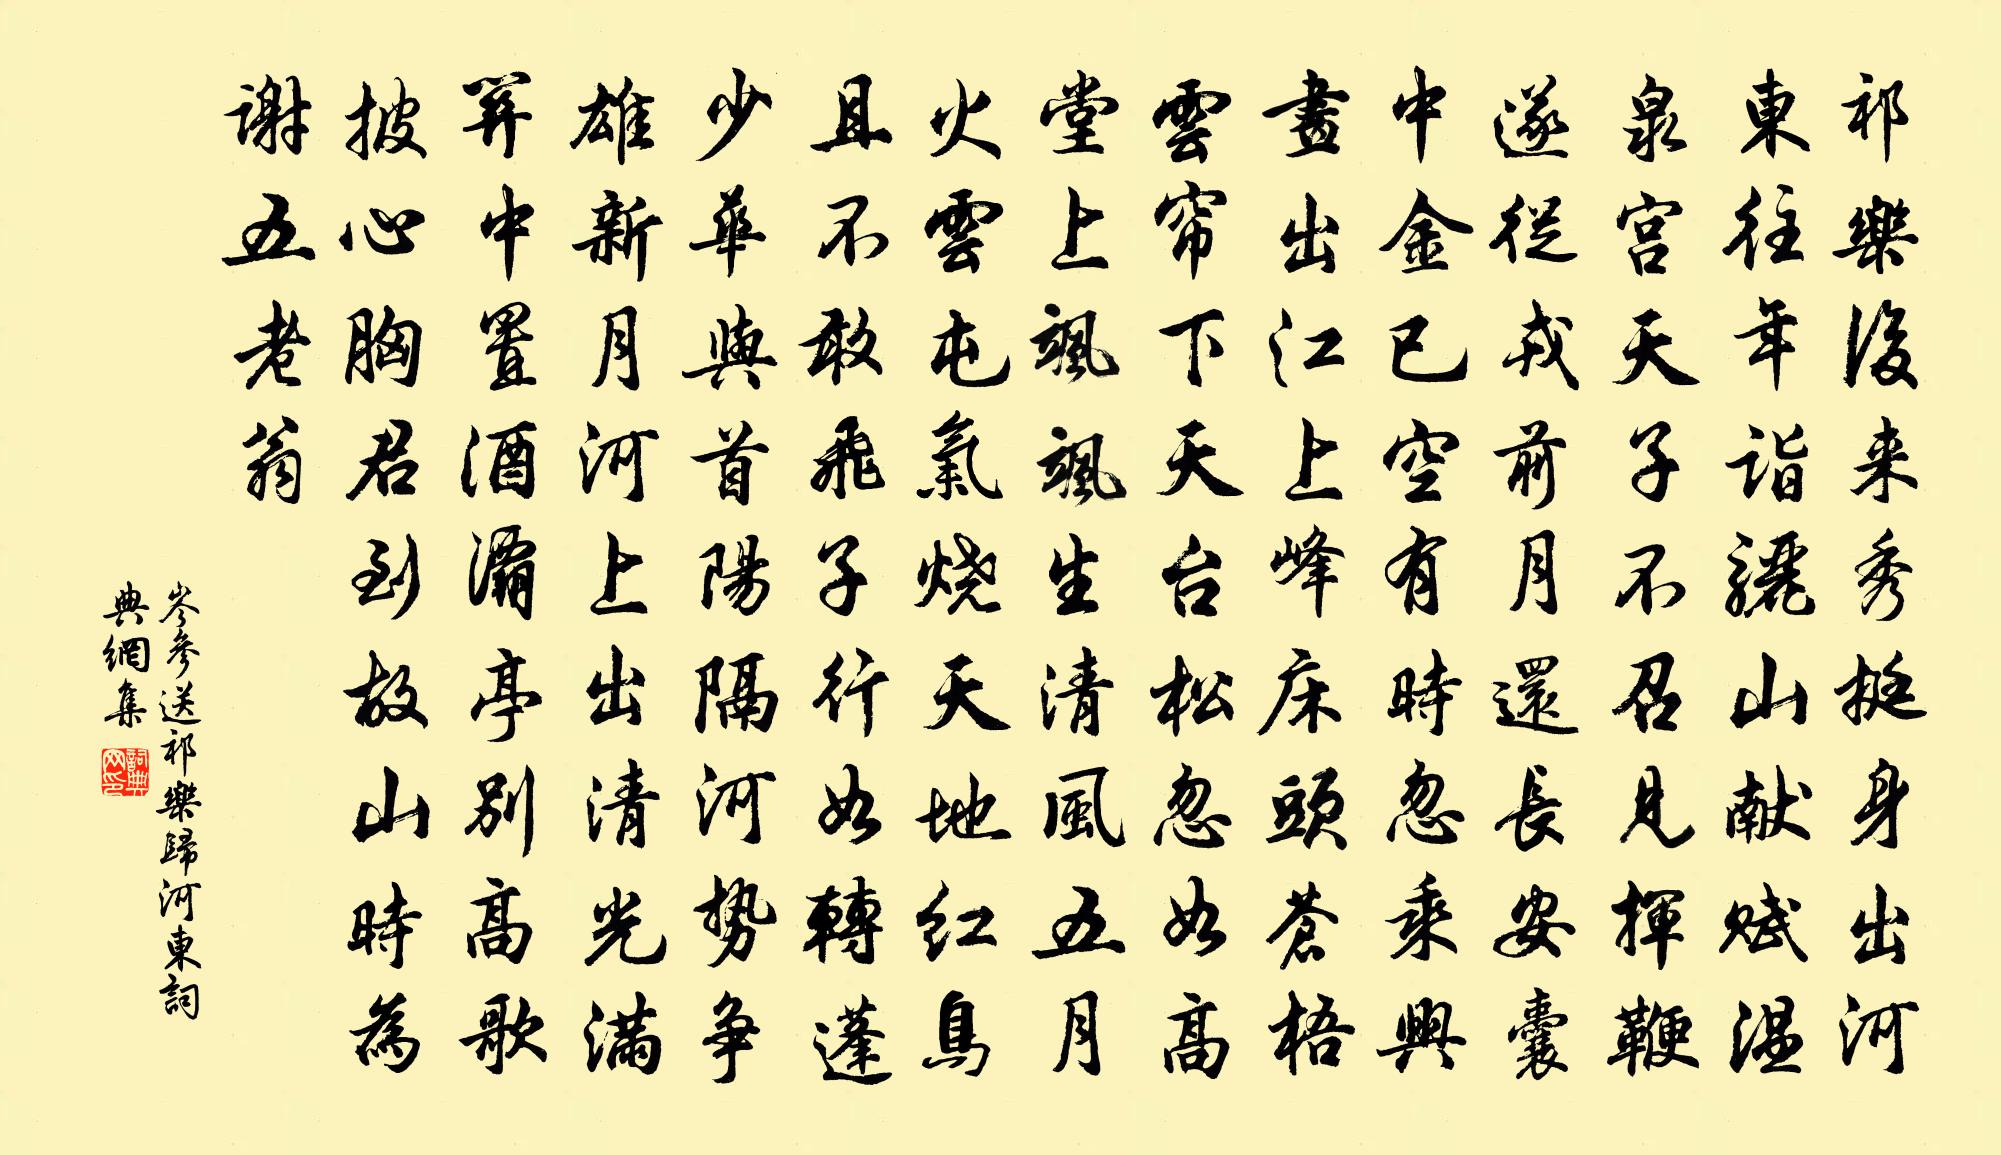 祁樂後来秀挺身出河
東往年詣驪山献赋温
泉宫天子不召見揮鞭
遂從戎前月還長安囊
中金已空有時忽乘興
畫出江上峰床頭蒼梧
雲帘下天台松忽如高
堂上颯颯生清風五月
火雲屯氣烧天地红鳥
且不敢飛子行如轉蓬
少華與首陽隔河勢争
雄新月河上出清光满
關中置酒灞亭别高歌
披心胸君到故山時為
謝五老翁
岑參送祁樂歸河東詞
典網集
詞典网印